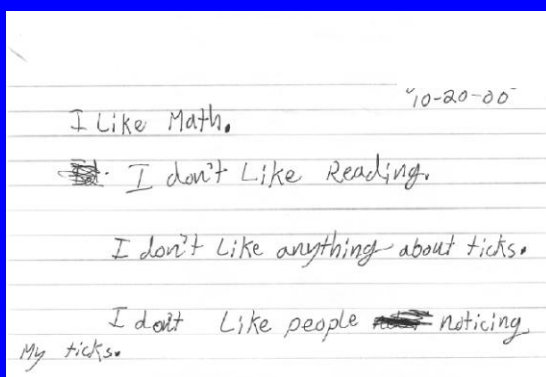 10-20-00
I Like Math.
I don't Like Reading.
I don't Like anything about ticks.
I dont Like people noticing
My ticks.